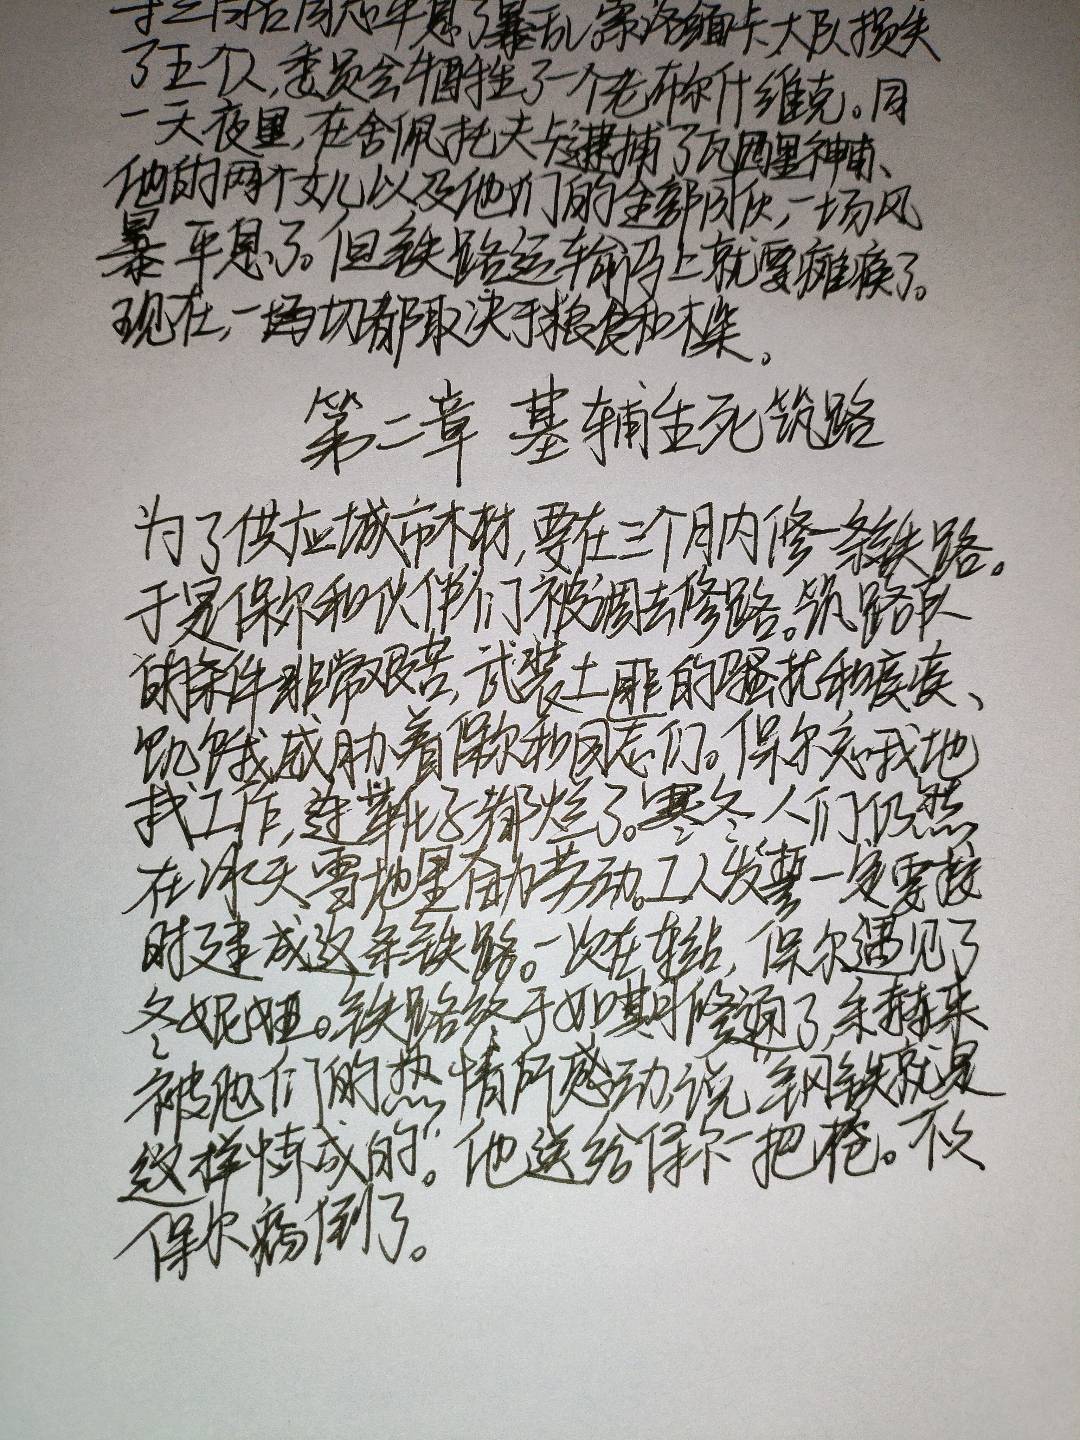 平息了暴乱。索洛缅卡大队损失
了五个人,委员会牺牲了一个老布尔什维克。同
一天夜里,在舍佩托夫卡逮捕了瓦西里神甫、
他的两个女儿以及他们的全部同伙,一场风
暴平息了。但铁路运输马上就要瘫痪了。
现在,一切都取决于粮食和木柴。
第二章 基辅生死筑路
为了供应城市木材,要在三个月内修一条铁路。
于是保尔和伙伴们被调去修路。筑路队
的条件非常艰苦,武装土匪的骚扰和疾疾、
饥饿威胁着保尔和同志们。保尔忘我地
找工作,连靴子都烂了。寒冬人们仍然
在冰天雪地里奋力劳动。工人发誓一定要按
时建成这条铁路。一次在车站,保尔遇见了
冬妮娅。铁路终于如期修通了,朱赫来
被他们的热情所感动,说“钢铁就是
这样炼成的”。他送给保尔一把枪。不久
保尔病倒了。